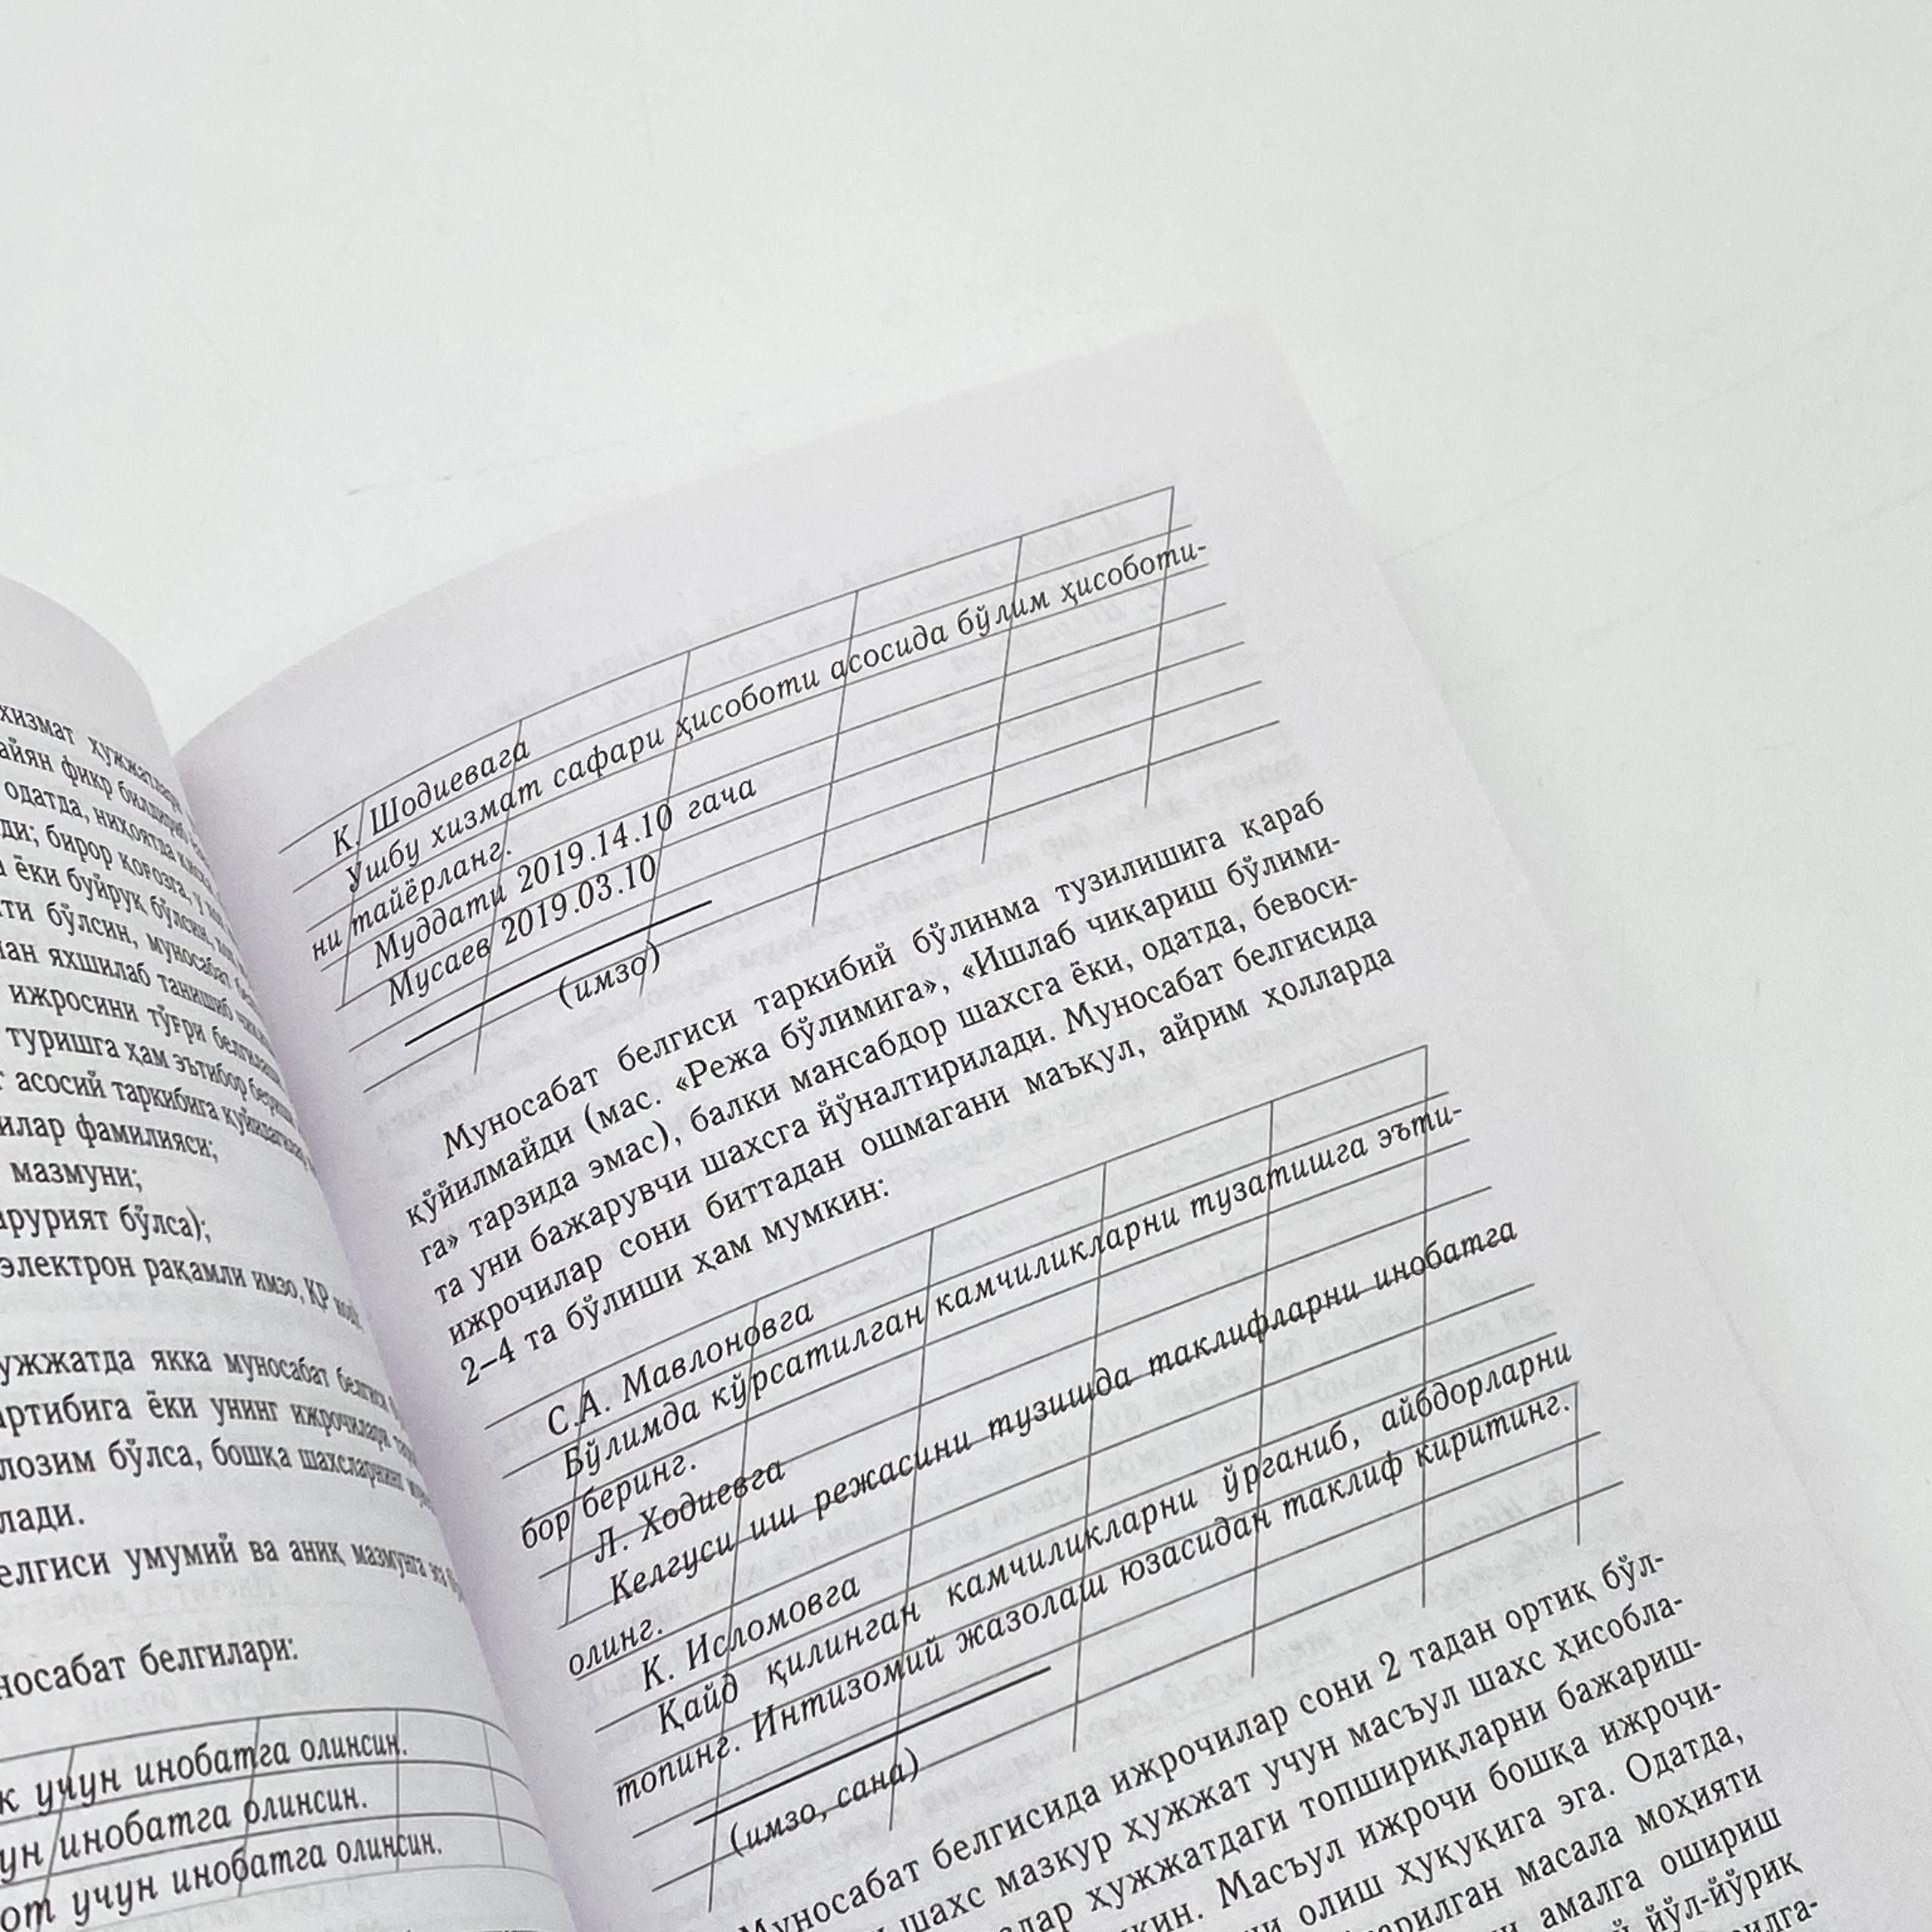 хизмат ҳужжатлари
айян фикр билдириб
одатда, ниҳоятда қисқа
ди; бирор қоғозга, у
ёки буйруқ бўлсин,
ти бўлсин, муносабат
ан яхшилаб танишиб
ижросини тўғри белгилаш
туришга ҳам эътибор бериш
асосий таркибига қуйидагилар
илар фамилияси;
мазмуни;
арурият бўлса);
электрон рақамли имзо, ҚР
ужжатда якка муносабат белгиси
артибига ёки унинг ижрочилари
лозим бўлса, бошқа шахсларнинг
лади.
елгиси умумий ва аниқ мазмунга эга
носабат белгилари:
к учун инобатга олинсин.
ун инобатга олинсин.
от учун инобатга олинсин.
К. Шодиевага
Ушбу хизмат сафари ҳисоботи асосида бўлим ҳисоботи-
ни тайёрланг.
Муддати 2019.14.10 гача
Мусаев 2019.03.10
(имзо)
Муносабат белгиси таркибий бўлинма тузилишига қараб
қўйилмайди (мас. «Режа бўлимига», «Ишлаб чиқариш бўлими-
га» тарзида эмас), балки мансабдор шахсга ёки, одатда, бевоси-
та уни бажарувчи шахсга йўналтирилади. Муносабат белгисида
ижрочилар сони биттадан ошмагани маъқул, айрим ҳолларда
2–4 та бўлиши ҳам мумкин:
С.А. Мавлоновга
Бўлимда кўрсатилган камчиликларни тузатишга эъти-
бор беринг.
Л. Ходиевга
Келгуси иш режасини тузишда таклифларни инобатга
олинг.
К. Исломовга
Қайд қилинган камчиликларни ўрганиб, айбдорларни
топинг. Интизомий жазолаш юзасидан таклиф киритинг.
(имзо, сана)
Муносабат белгисида ижрочилар сони 2 тадан ортиқ бўл-
шахс мазкур ҳужжат учун масъул шахс ҳисобла-
лар ҳужжатдаги топшириқларни бажариш-
кин. Масъул ижрочи бошқа ижрочи-
олиш ҳуқуқига эга. Одатда,
арилган масала моҳияти
амалга ошириш
йўл-йўриқ
илга-